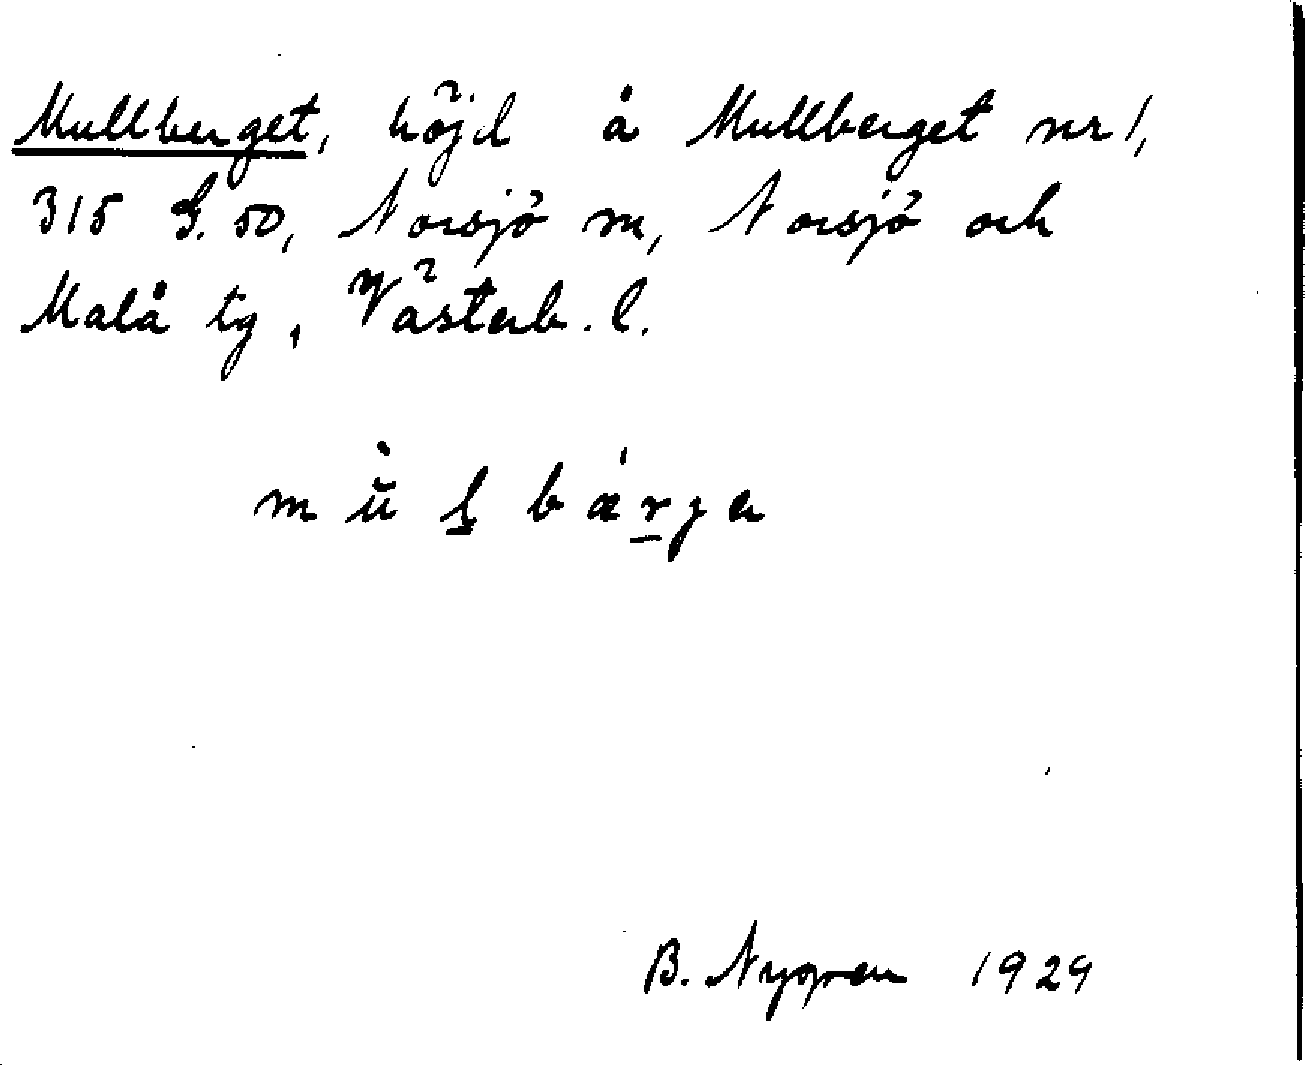 Mullberget, höjd å Mullberget nr 1,
315 S. 50, Norsjö sn, Norsjö och
Malå tg, Västerb. l.
mùl bǽrje
B. Nygren 1929